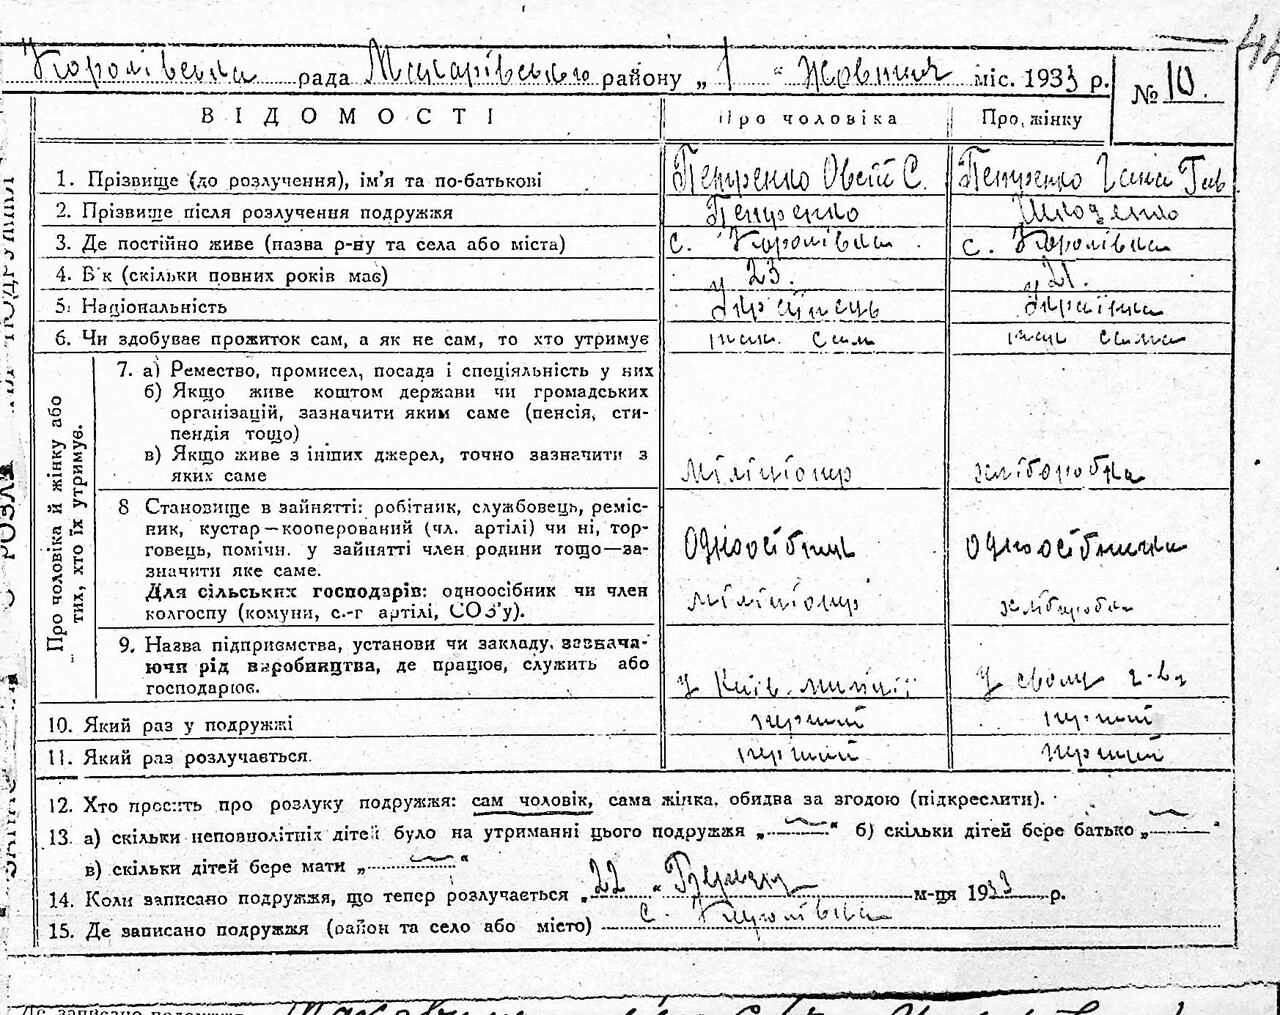 Королівська рада Макарівського району „ 1 “ Жовтня міс. 1933 р.
№ 10.
44
ВІДОМОСТІ Про чоловіка Про жінку
1. Прізвище (до розлучення), ім'я та по-батькові Петренко Овсій С. Петренко Гана Гав
2. Прізвище після розлучення подружжя Петренко
3. Де постійно живе (назва р-ну та села або міста) с. Королівка с. Королівка
4. Вік (скільки повних років має) 23. 21.
5. Національність Українець Українка
6. Чи здобуває прожиток сам, а як не сам, то хто утримує так. сам так сама
Про чоловіка й жінку або
тих, хто їх утримує.
7. а) Ремество, промисел, посада і спеціяльність у них
б) Якщо живе коштом держави чи громадських
організацій, зазначити яким саме (пенсія, сти-
пендія тощо)
в) Якщо живе з інших джерел, точно зазначити з
яких саме міліціонер хліборобка
8 Становище в зайнятті: робітник, службовець, реміс-
ник, кустар—кооперований (чл. артілі) чи ні, тор-
говець, помічн. у зайнятті член родини тощо—за-
значити яке саме. одноосібник одноосібниця
Для сільських господарів: одноосібник чи член
колгоспу (комуни, с.-г артілі, СОЗ'у). міліціонер хліборобка
9. Назва підприємства, установи чи закладу, зазнача-
ючи рід виробництва, де працює, служить або
господарює. у Київ. міліції у свому г-ві
10. Який раз у подружжі перший перший
11. Який раз розлучається. перший перший
12. Хто просить про розлуку подружжя: сам чоловік, сама жінка, обидва за згодою (підкреслити).
13. а) скільки неповнолітніх дітей було на утриманні цього подружжя „ — “ б) скільки дітей бере батько „ — “
в) скільки дітей бере мати „ — “
14. Коли записано подружжя, що тепер розлучається „ 22 “ м-ця 1933 р.
15. Де записано подружжя (район та село або місто) с. Королівка
Де записано подружжя